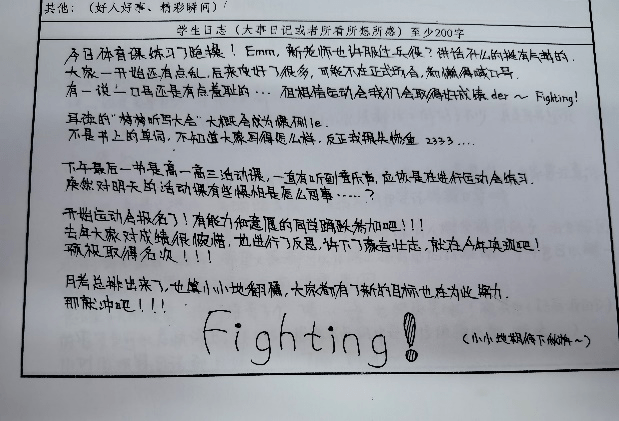 其他：（好人好事、精彩瞬间）
学生日志（大事日记或者所看所想所感）至少200字
今日体育课练习了跑操！Emm，新老师也许服过兵役？讲话什么的挺有气势的.
大家一开始还有点乱，后来便好了很多，可能不在正式场合，都懒得喊口号.
有一说一口号还是有点羞耻的… 但相信运动会我们会取得好成绩der～Fighting!
英语的“猜猜听写大会”大概会成为惯例le.
不是书上的单词，不知道大家写得怎么样，反正我很失败鱼2333….
下午最后一节是高一高三活动课，一直有听到音乐声，应该是在进行运动会练习.
突然对明天的活动课有些惧怕是怎么回事……？
开始运动会报名了！有能力和意愿的同学踊跃参加吧！！！
去年大家对成绩很惋惜，也进行了反思，许下了豪言壮志，就在今年实现吧！
预祝取得名次！！！
月考总排出来了，也算小小地翻篇，大家都有了新的目标也在为此努力.
那就冲吧！！！
Fighting!
（小小地期待下做操～）